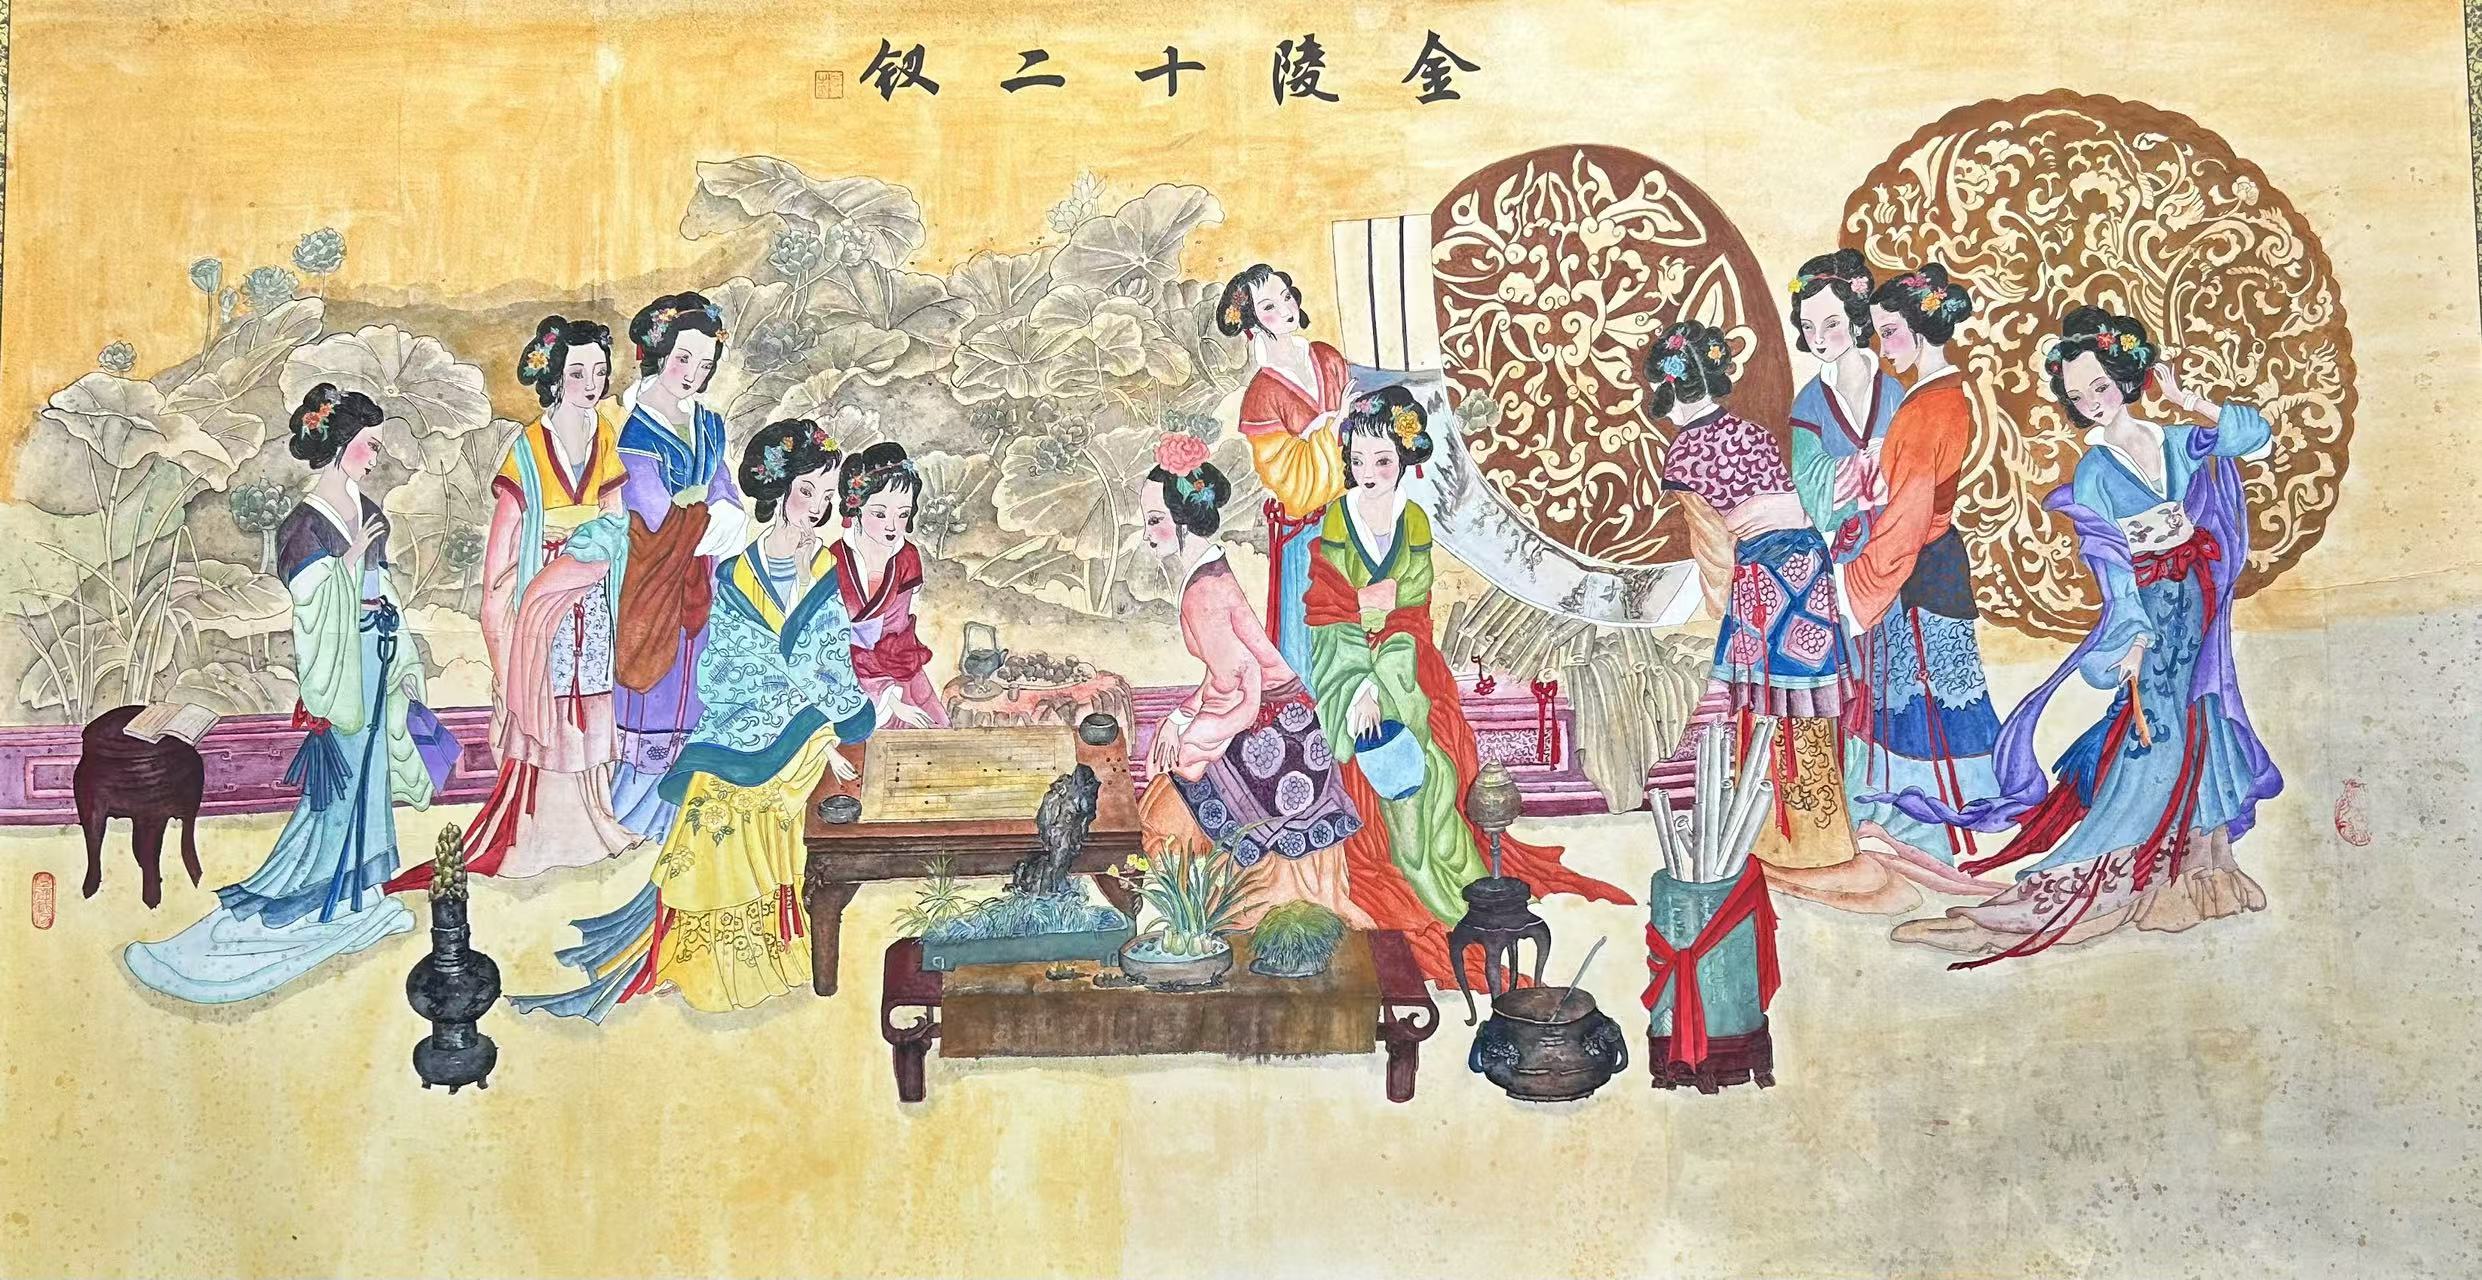 金陵十二釵